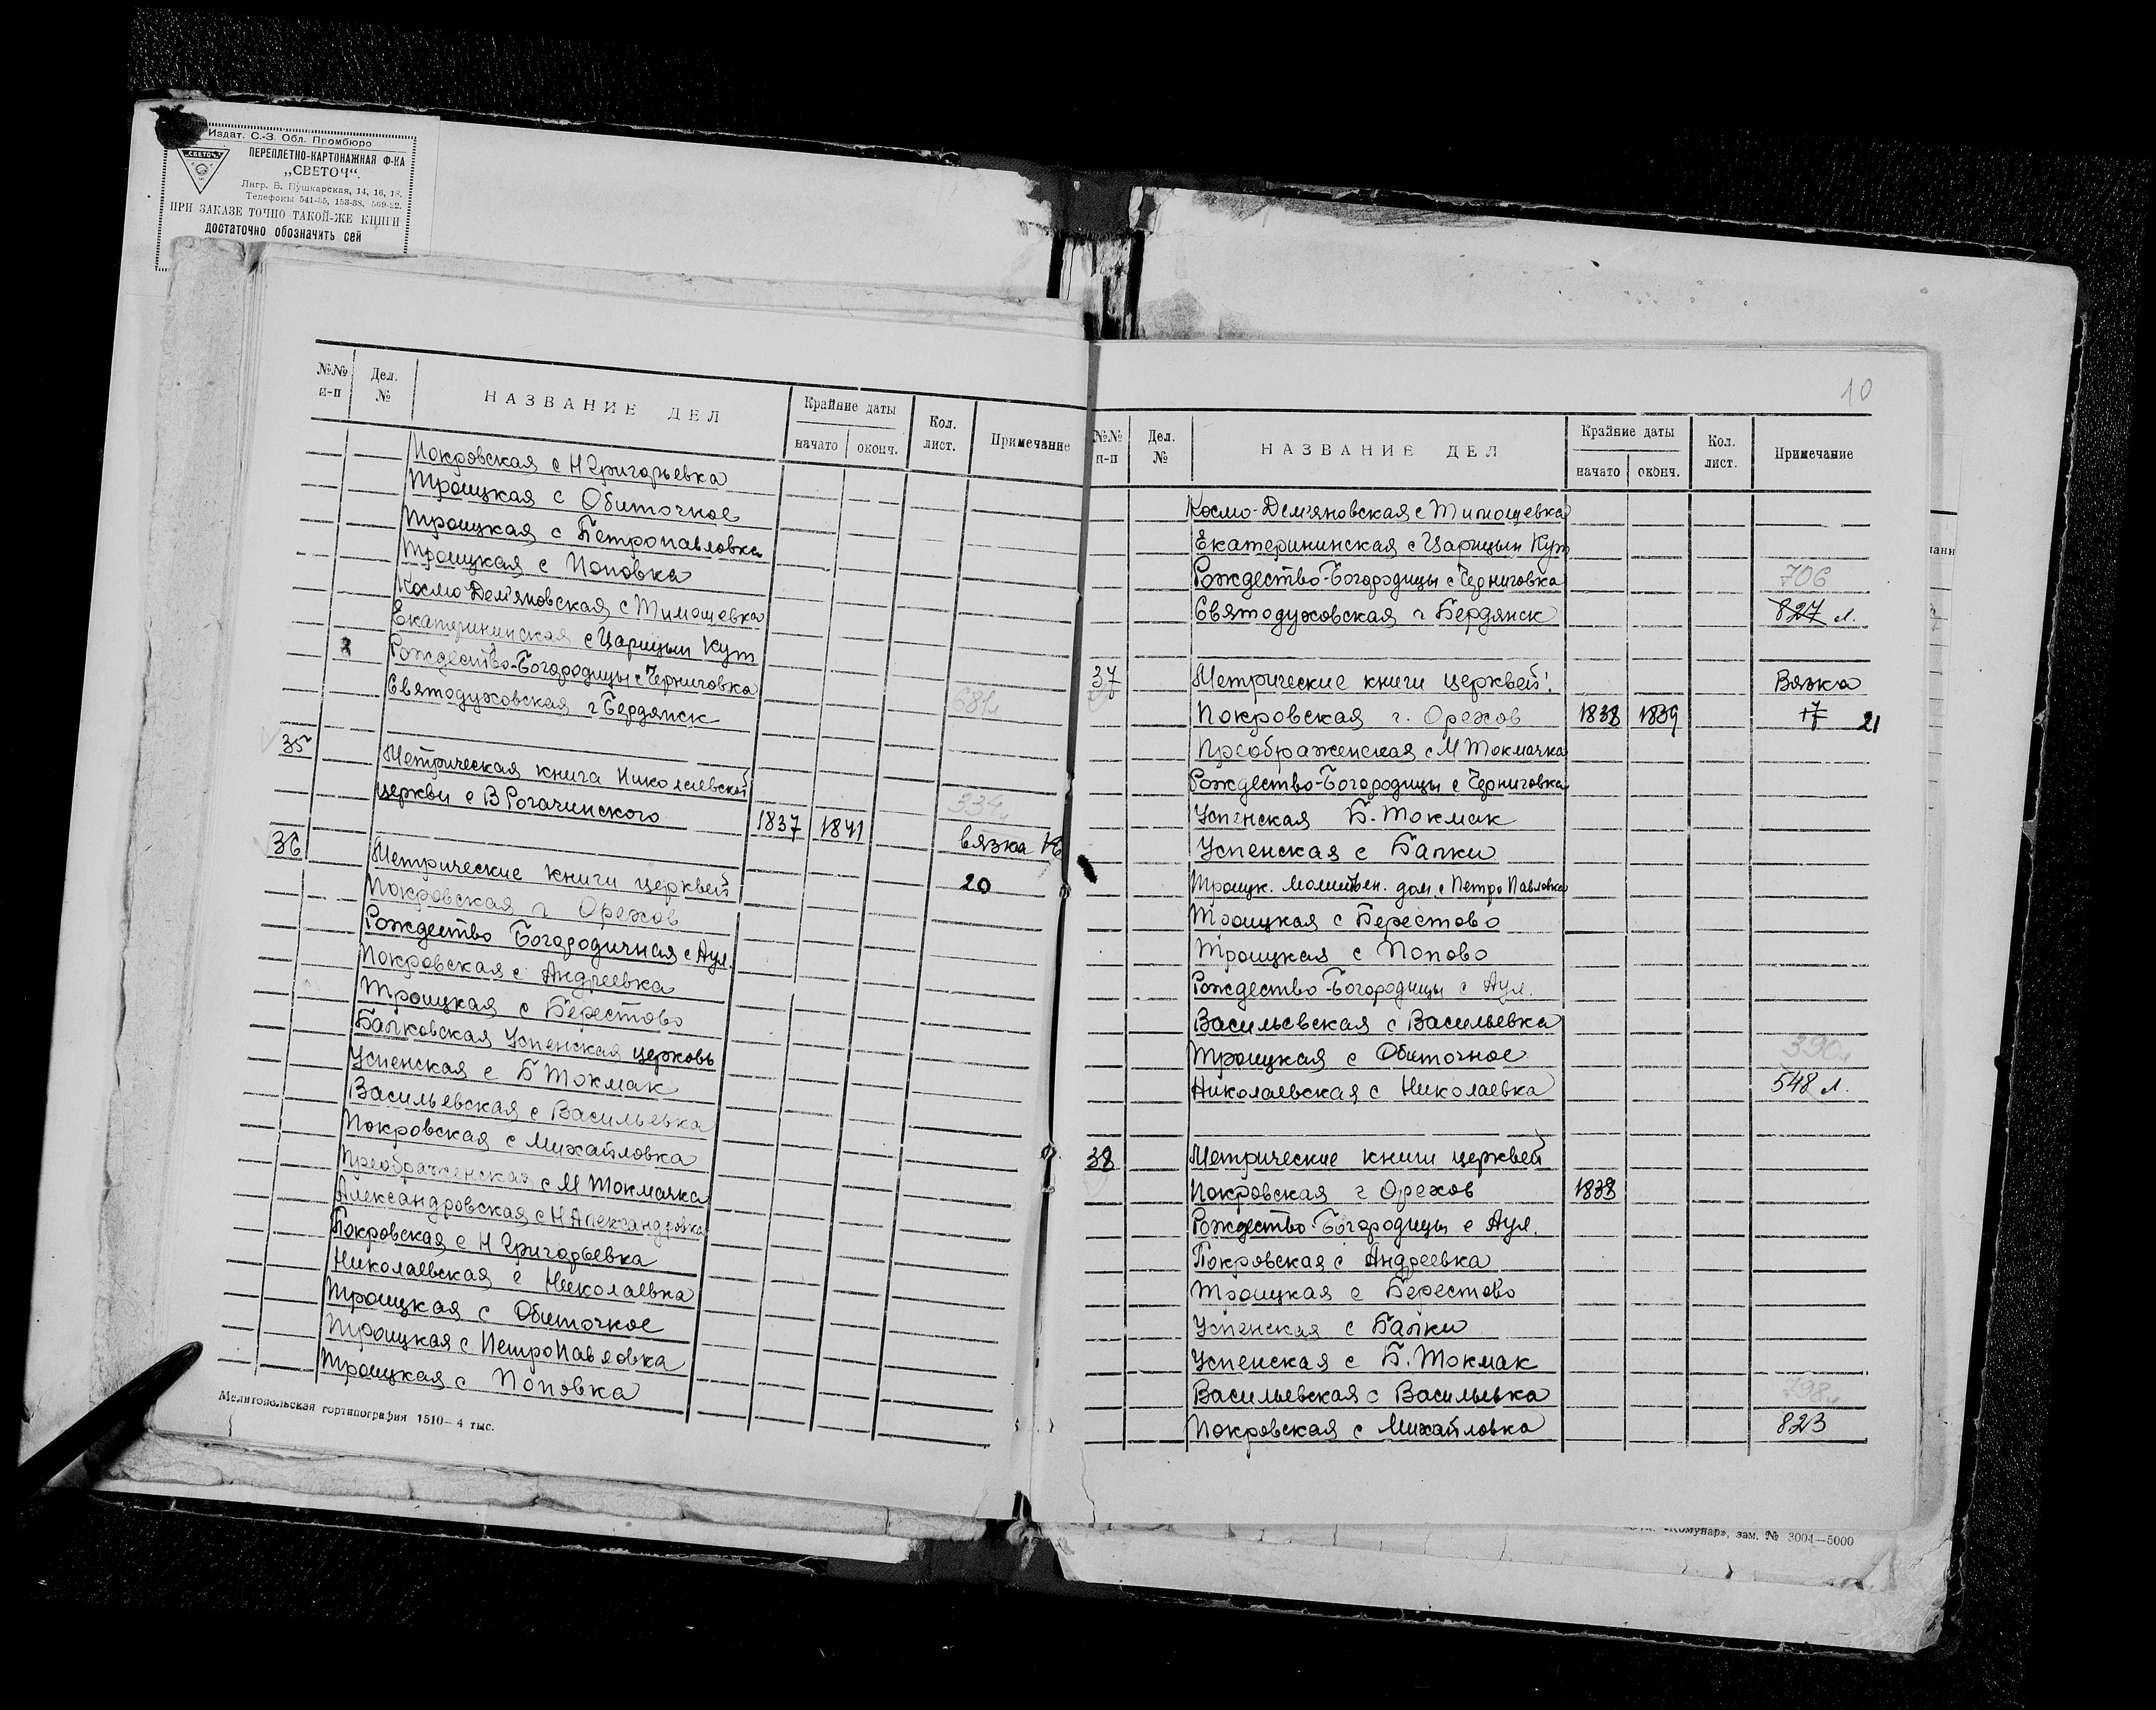 Издат. С.-З. Обл. Промбюро
„СВЕТОЧ“
ПЕРЕПЛЕТНО-КАРТОНАЖНАЯ Ф-КА
„СВЕТОЧ“.
Лнгр. Б. Пушкарская, 14, 16, 18.
Телефоны 541-35, 153-88, 569-22.
ПРИ ЗАКАЗЕ ТОЧНО ТАКОЙ-ЖЕ КНИГИ
достаточно обозначить сей
№№ п-п Дел. № НАЗВАНИЕ ДЕЛ Крайние даты начато оконч. Кол. лист. Примечание
Покровская с Н Григорьевка
Троицкая с Обиточное
Троицкая с Петропавловка
Троицкая с Поповка
Космо Дем'яновская с Тимошевка
Екатерининская с Царицын Кут
Рождество-Богородицы с Черниговка
Святодуховская г Бердянск 681 л
35 Метрическая книга Николаевской
церкви с В Рогачинского 1837 1841 334 л
вязка 16
36 Метрические книги церквей 20
Покровская г Орехов
Рождество Богородичная с Аул.
Покровская с Андреевка
Троицкая с Берестово
Балковская Успенская церковь
Успенская с Б Токмак
Васильевская с Васильевка
Покровская с Михайловка
Преображенская с М Токмачка
Александровская с Н Александровка
Покровская с Н Григорьевка
Николаевская г Николаевка
Троицкая с Обиточное
Троицкая с ПетроПавловка
Троицкая с Поповка
Мелитопольская гортипография 1510—4 тыс.
10
№№ п-п Дел. № НАЗВАНИЕ ДЕЛ Крайние даты начато оконч. Кол. лист. Примечание
Космо-Дем'яновская с Тимошевка
Екатерининская с Царицын Кут
Рождество-Богородицы с Черниговка 706
Святодуховская г Бердянск 827 л.
37 Метрические книги церквей: Вязка
Покровская г. Орехов 1838 1839 17 21
Преображенская с М Токмачка
Рождество-Богородицы с Черниговка
Успенская Б. Токмак
Успенская с Балки
Троицк. Молитвен. дом, с Петро Павловка
Троицкая с Берестово
Троицкая с Попово
Рождество-Богородицы с Аул.
Васильевская с Васильевка
Троицкая с Обиточное 390 л
Николаевская с Николаевка 548 л.
38 Метрические книги церквей
Покровская г Орехов 1838
Рождество-Богородицы с Аул.
Покровская с Андреевка
Троицкая с Берестово
Успенская с Балки
Успенская с Б. Токмак
Васильевская с Васильевка 798 л
Покровская с Михайловка 823
«Комунар», зам. № 3004—5000